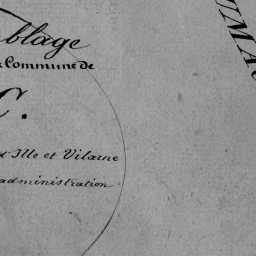 blage
Commune de
C.
Ille et Vilaine
administration
UMA